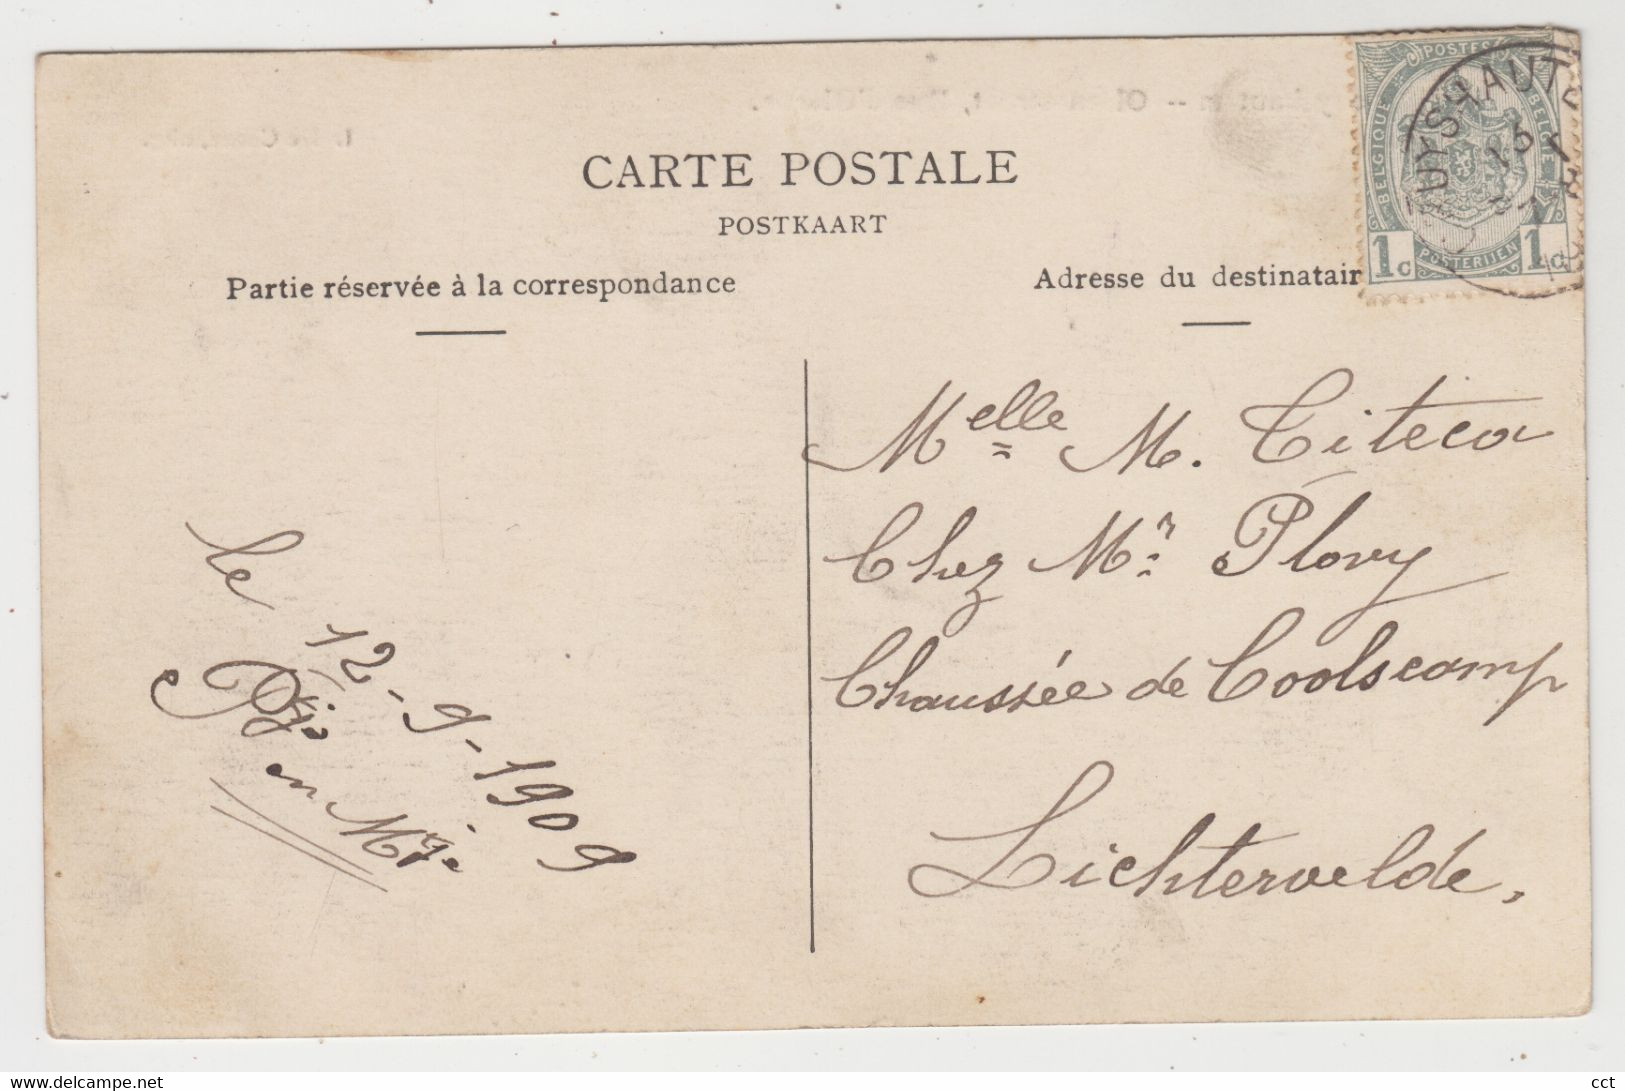 CARTE POSTALE
POSTKAART
Partie réservée à la correspondance
Adresse du destinatair
POSTES
BELGIQUE
BELGIE
1c
1c
POSTERIJEN
UYSHAUT
15
Melle M. Titeca
Chez Mr. Plovy
Chaussée de Coolscamp
Lichtervelde,
le 12-9-1909
en
www.delcampe.net
cct